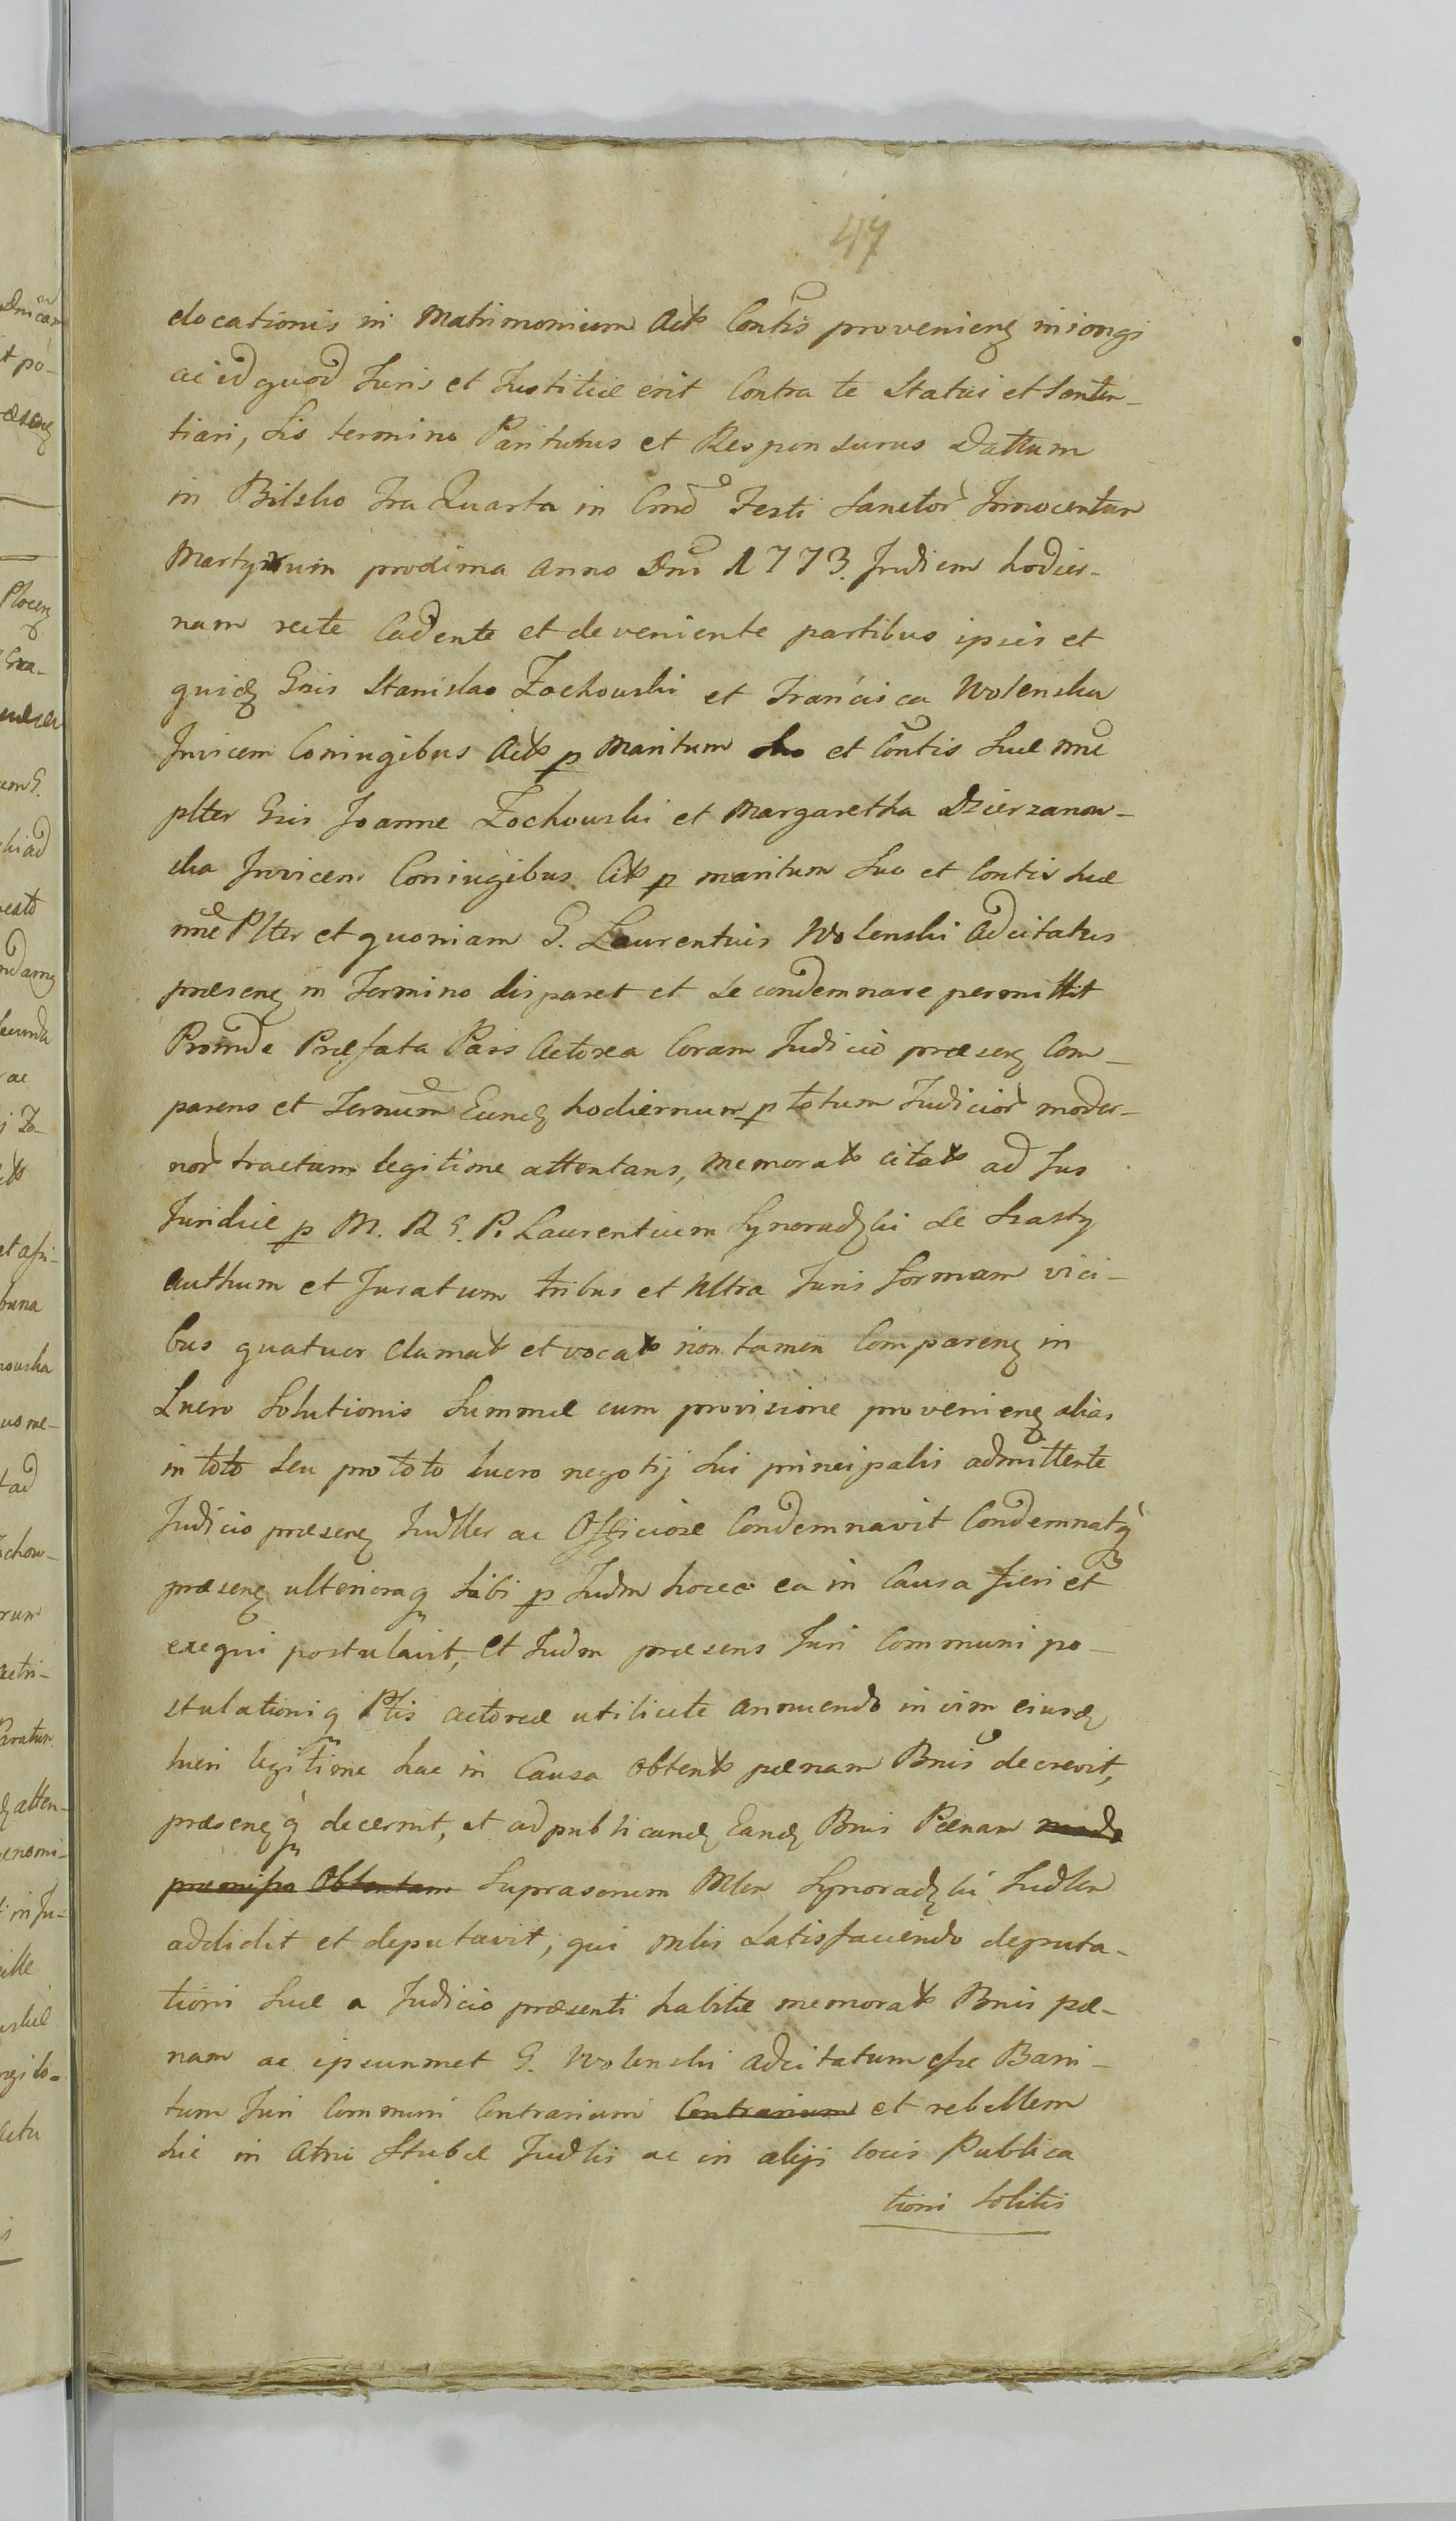 47
elocationis in Matrimonium Act Contis provenienz iniongi
ac id quod Juris et Justitiæ erit Contra te Statui et Senten-
tiari, Sis termino Pariturus et Responsurus Dattum
in Bilsko Fra Quarta in Crnd Festi Sanctor Innocentum
Martyrum proxima Anno Dni 1773. In diem hodier-
nam recte Cadente et deveniente partibus ipsis et
quidz Gsis Stanislao Zochowski et Francisca Wolenska
Invicem Coniugibus Act p Maritum Suo et Contis Suæ nne
plter Gsis Joanne Zochowski et Margaretha Dzierzanow-
ska Invicem Coniugibus Cit p maritum Suo et Contis Suæ
nne Plter et quoniam G. Laurentius Wolenski Adcitatus
præsenz in Termino disparet et se condemnare permittit
Proinde Præfata Pars Actorea Coram Judicio præsenz Com-
parens et Ternum Eundz hodiernum p totum Judicior moder-
nor tractum legitime attentans, Memorat citat ad Jus
Juridice p M. R G. P. Laurentium Synoradzki de Szasty
authum et Juratum tribus et Ultra Juris formam vici-
bus quatuor Clamat et vocat non tamen Comparenz in
Lucro Solutionis Summæ cum provisione provenienz alias
in toto Seu pro toto lucro negotij Sui principalis admittente
Judicio præsenz Judller ac Officiose Condemnavit Condemnatq
præsenz ulterioraq Sibi p Judm hocce ea in Causa fieri et
exequi postulavit, Et Judm præsens Juri Communi po-
stulationiq Ptis actoreæ utilicite annuendo in vim eiusdz
lucri legitime hac in Causa Obtent pænam Bnis decrevit,
præsenzq decernit, et ad publicandz Eandz Bnis Pænam modo
præmisso Obtentam Suprascrium Mlem Synoradzki Judlem
addidit et deputavit, qui Mlis Satisfaciendo deputa-
tioni Suæ a Judicio præsenti habitæ memorat Bnis pæ-
nam ac ipsummet G. Wolenski adcitatum esse Bani-
tum Juri Communi Contrarium Contrarium et rebellem
hic in Atrio Stubæ Judlis ac in alijs locis Publica
tioni Solitis